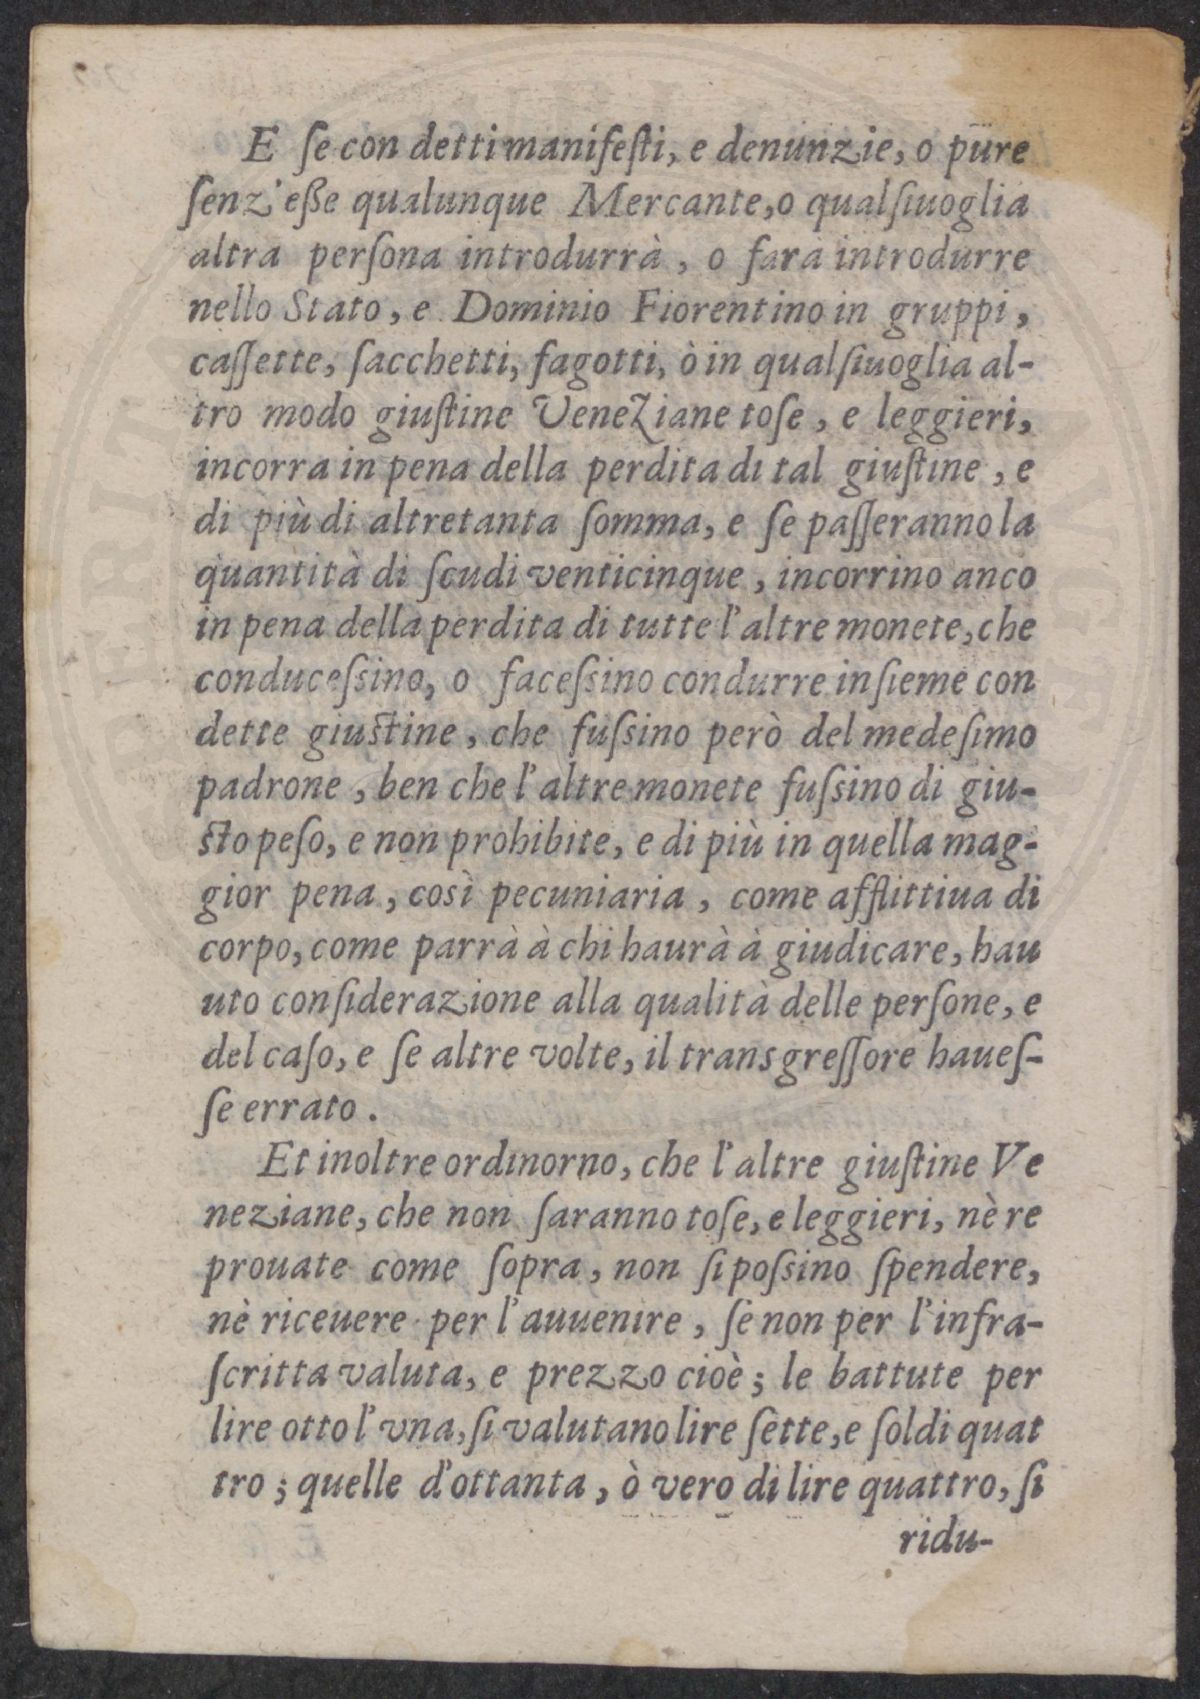 E ſe con detti manifeſti, e denunzie, o pure
ſenz'eße qualunque Mercante, o qualſiuoglia
altra perſona introdurrà, o farà introdurre
nello Stato, e Dominio Fiorentino in gruppi,
caſſette, ſacchetti, fagotti, ò in qualſiuoglia al-
tro modo giuſtine Veneziane toſe, e leggieri,
incorra in pena della perdita di tal giuſtine, e
di più di altretanta ſomma, e ſe paſſeranno la
quantità di ſcudi venticinque, incorrino anco
in pena della perdita di tutte l'altre monete, che
conduceſsino, o faceſsino condurre inſieme con
dette giuſtine, che fuſsino però del medeſimo
padrone, ben che l'altre monete fuſsino di giu-
ſto peſo, e non prohibite, e di più in quella mag-
gior pena, così pecuniaria, come afflittiua di
corpo, come parrà à chi haurà à giudicare, hau
uto conſiderazione alla qualità delle perſone, e
del caſo, e ſe altre volte, il transgreſſore haueſ-
ſe errato.
Et inoltre ordinorno, che l'altre giuſtine Ve
neziane, che non ſaranno toſe, e leggieri, nè re
prouate come ſopra, non ſi poſsino ſpendere,
nè riceuere per l'auuenire, ſe non per l'infra-
ſcritta valuta, e prezzo cioè; le battute per
lire otto l'vna, ſi valutano lire ſette, e ſoldi quat
tro; quelle d'ottanta, ò vero di lire quattro, ſi
ridu-